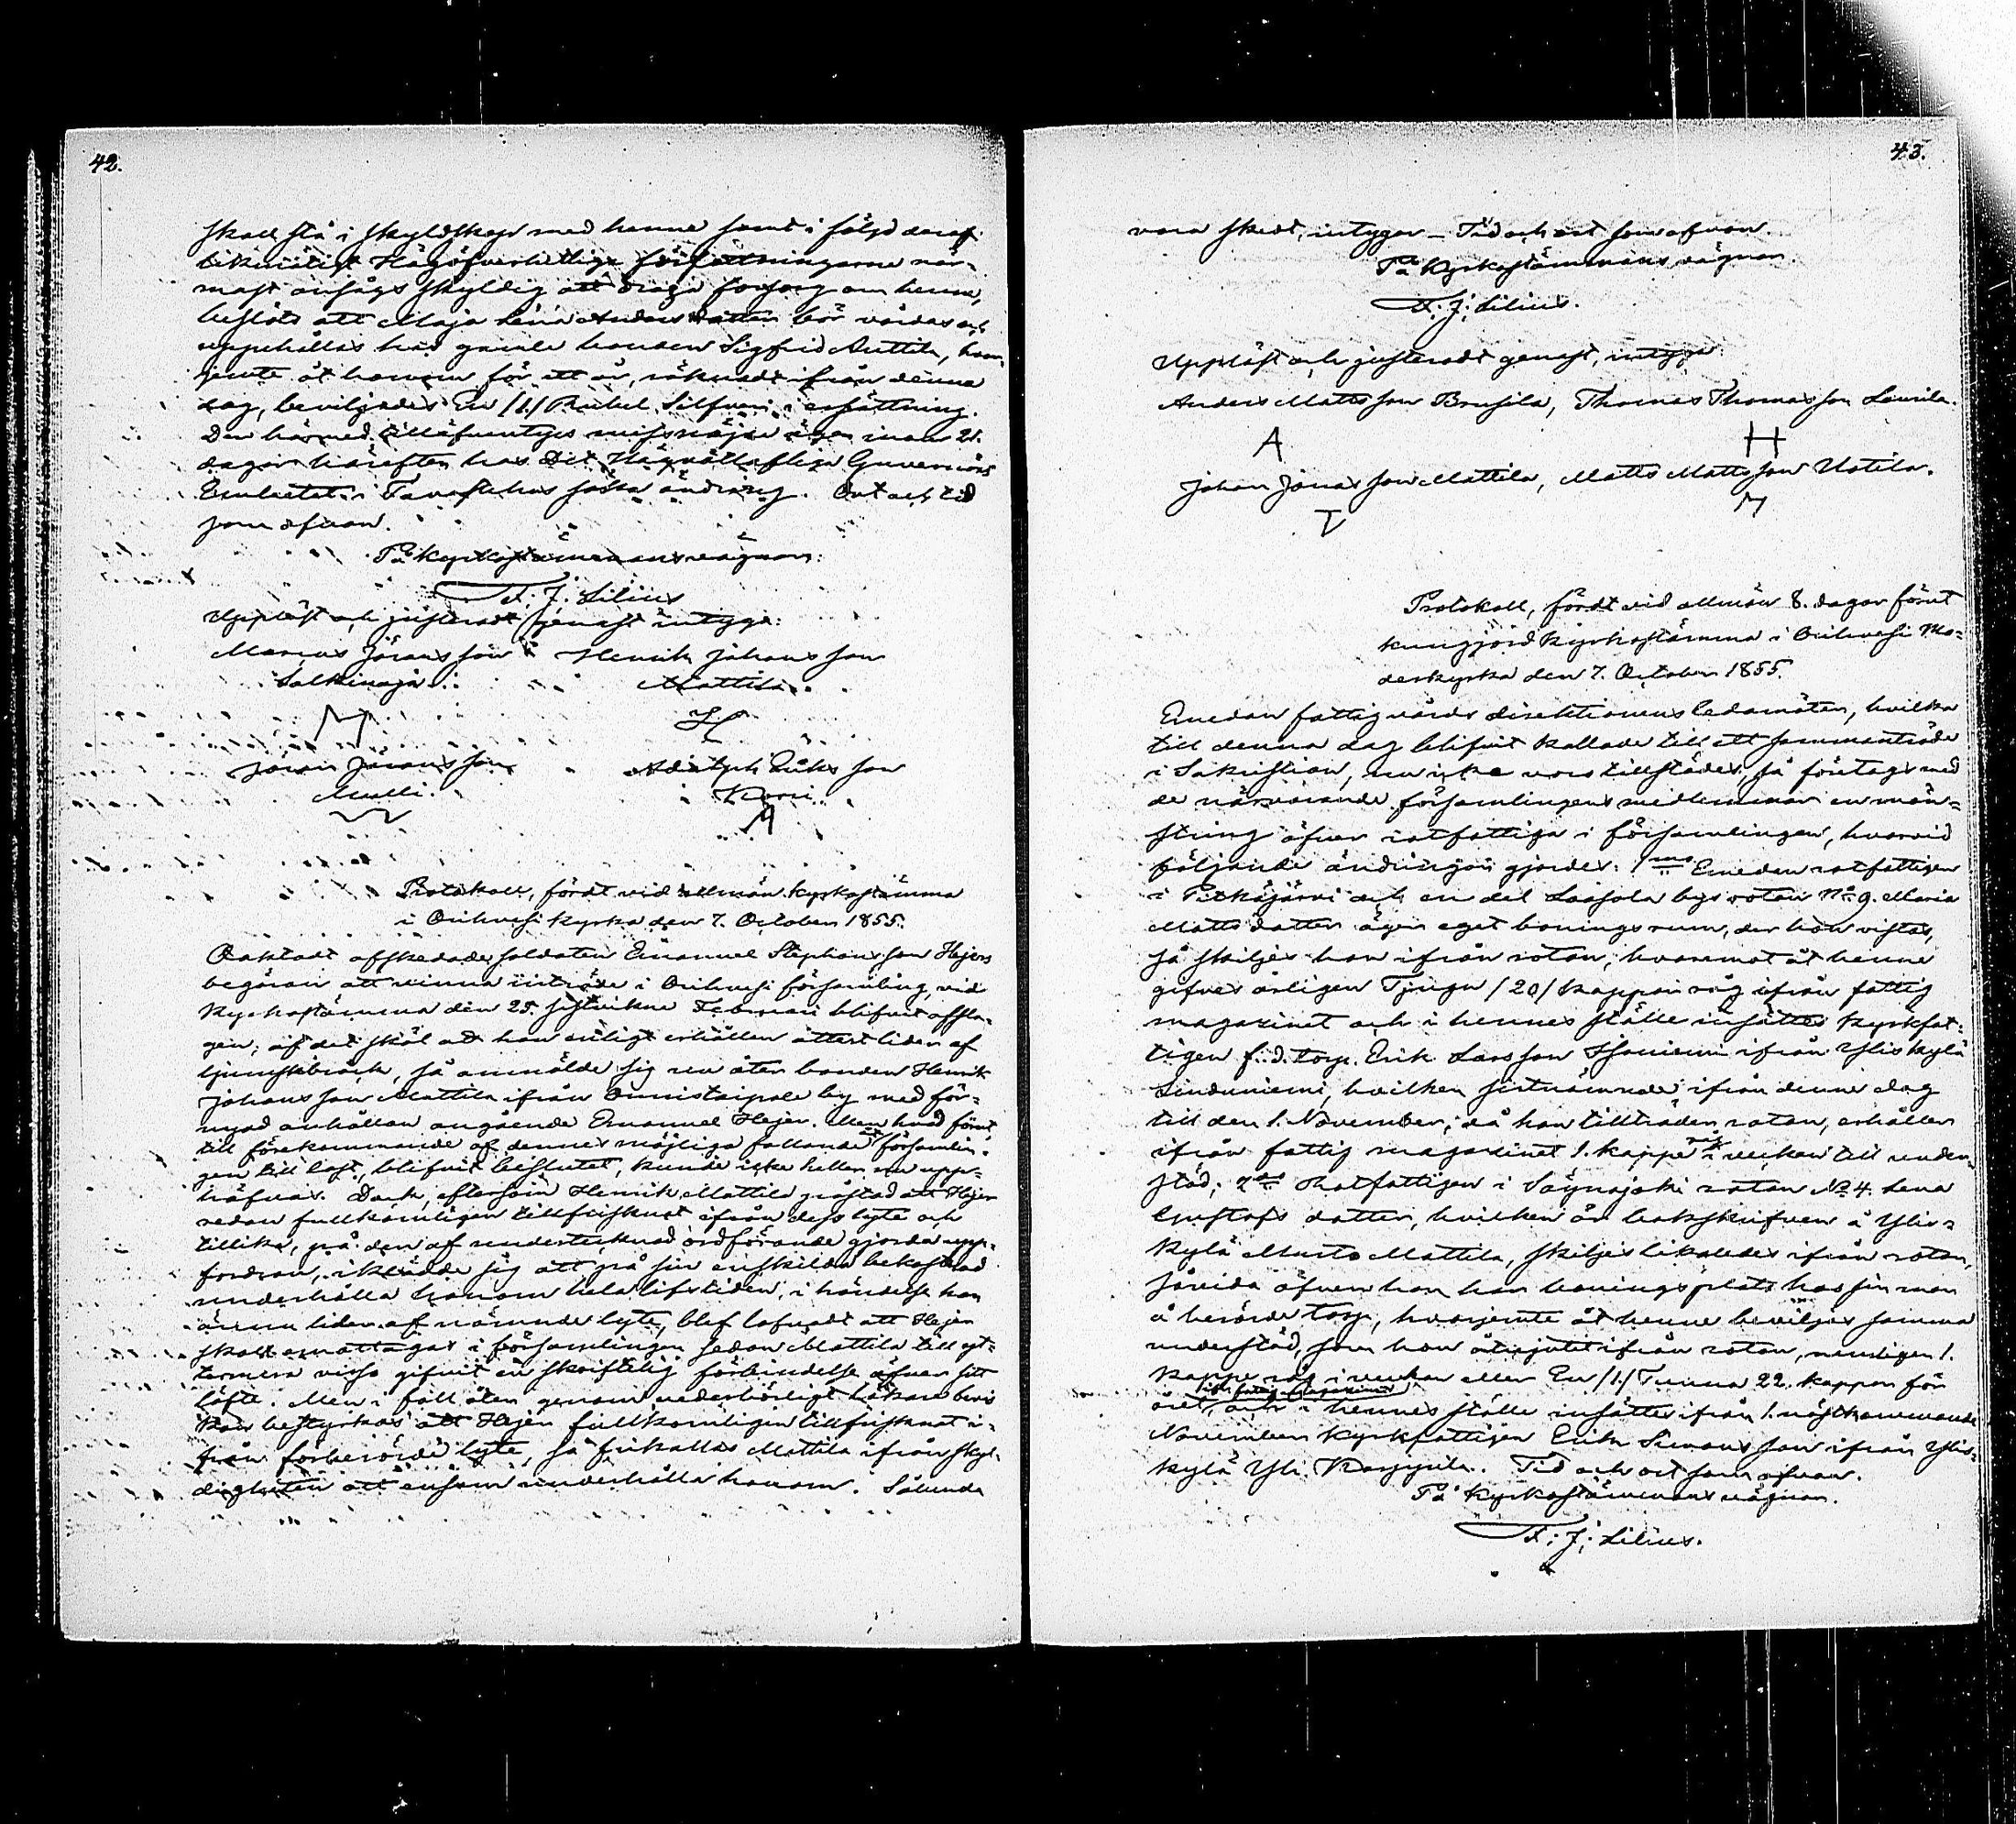 42.
skall stå i skyldskap med henne samt i följd deraf
likmätigt Högöfverhetliga författningarne när-
mast ansågs skyldig att draga försorg om henne,
beslöts att Maja Lena Andersdotter bör vårdas och
uppehållas hos gamle bonden Sigfrid Anttila, hvar-
jemte åt honom för ett år, räknadt ifrån denna
dag, beviljades En /1/ Rubel Silfver i ersättning.
Den härmed tilläfventyrs missnöjde äger inom 21.
dagar härefter hos Det Högvällofliga Guvernörs
Embetet i Tavastehus söka ändring. Ort och tid
som ofvan.
På Kyrkostämmans vägnar:
F. J. Lilius
Uppläst och justeradt genast intyga:
Marcus Jöransson Henrik Johansson
Mattila
M H
Jöran Jöransson Adolph Eriksson
Protokoll, fördt vid allmän kyrkostämma
i Orihvesi kyrka den 7. October 1855.
Oaktadt afskedade soldaten Emanuel Stephansson Hejers
begäran att vinna inträde i Orihvesi församling, vid
Kyrkostämma den 25. sistlidne Februari blifvit afsla-
gen, af det skäl att han enligt erhållen attest lider af
ljumskbråck, så anmälde sig nu åter bonden Henrik
Johansson Mattila ifrån Onnistaipale by med för-
nyad anhållan angående Emanuel Hejer. Men hvad förut,
till förekommande af dennes möjliga fallande församlin-
gen till last, blifvit beslutet, kunde icke heller nu upp-
häfvas. Dock, eftersom Henrik Mattila påstod att Hejer
redan fullkomligen tillfrisknat ifrån dess lyte och
tillika, på den af undertecknad ordförande gjorda upp-
fordran, iklädde sig att på sin enskilda bekostnad
underhålla honom hela lifstiden, i händelse han
ännu lider af nämnde lyte, blef lofvadt att Hejer
skall emottagas i församlingen sedan Mattila till yt-
termera visso gifvit en skriftelig förbindelse öfver sitt
löfte. Men i fall åter genom vederbörligt läkare bevis
kan bestyrkas att Hejer fullkomligen tillfrisknat i-
från förberörde lyte, så frikallas Mattila ifrån skyl-
digheten att ensam underhålla honom. Sålunda
43.
vara skedt, intygar – Tid och ort som ofvan.
På Kyrkostämmans vägnar
F. J. Lilius.
Uppläst och justeradt genast, intyga:
Anders Mattsson Brusila, Thomas Thomasson Laurila.
A H
Johan Jönasson Mattila, Matts Mattsson Uotila.
Protokoll, fördt vid allmän 8. dagar förut
kungjord Kyrkostämma i Orihvesi Mo-
derkyrka den 7. October 1855.
Emedan fattigvårds direktionens ledamöter, hvilka
till denna dag blifvit kallade till ett sammanträde
i Sakristian, nu icke voro tillstädes, så företogs med
de närvarande församlingens medlemmar en mön-
string öfver rotfattiga i församlingen, hvarvid
följande ändringar gjordes: 1mo Emedan rotfattigen
i Pitkäjärvi och en del Laasola bys rotan No 9. Maria
Mattsdotter äger eget boningsrum, der hon vistas,
så skiljes hon ifrån rotan; hvaremot åt henne
gifves årligen Tjugu /20/ kappar råg ifrån fattig
magazinet och i hennes ställe insättes kyrkfat-
tigen f. d. torp. Erik Larsson ifrån Yliskylä
hvilken sistnämnde, ifrån denne dag
till den 1. November, då han tillträder rotan, erhåller
ifrån fattig magazinet 1. kappe råg i veckan till under-
stöd; 2do Rotfattigen i Sägnsjoki rotan No 4. Lena
Gustafs dotter, hvilken är bokskrifven å Ylis-
kylä Musto Mattila, skiljes likaledes ifrån rotan,
såvida äfven hon har boningsplats hos sin man
å berörde torp, hvarjemte åt henne beviljas samma
understöd, som hon åtnjutit ifrån rotan, nemligen 1.
Kappe råg i veckan eller En /1/ Tunna 22. kappar för
året, ifrån fattig magazinet, och i hennes ställe insättes ifrån 1. nästkommande
November Kyrkfattigen Erik Simonsson ifrån Ylis-
kylä Yli Tid och ort som ofvan.
På Kyrkostämmans vägnar.
F. J. Lilius.